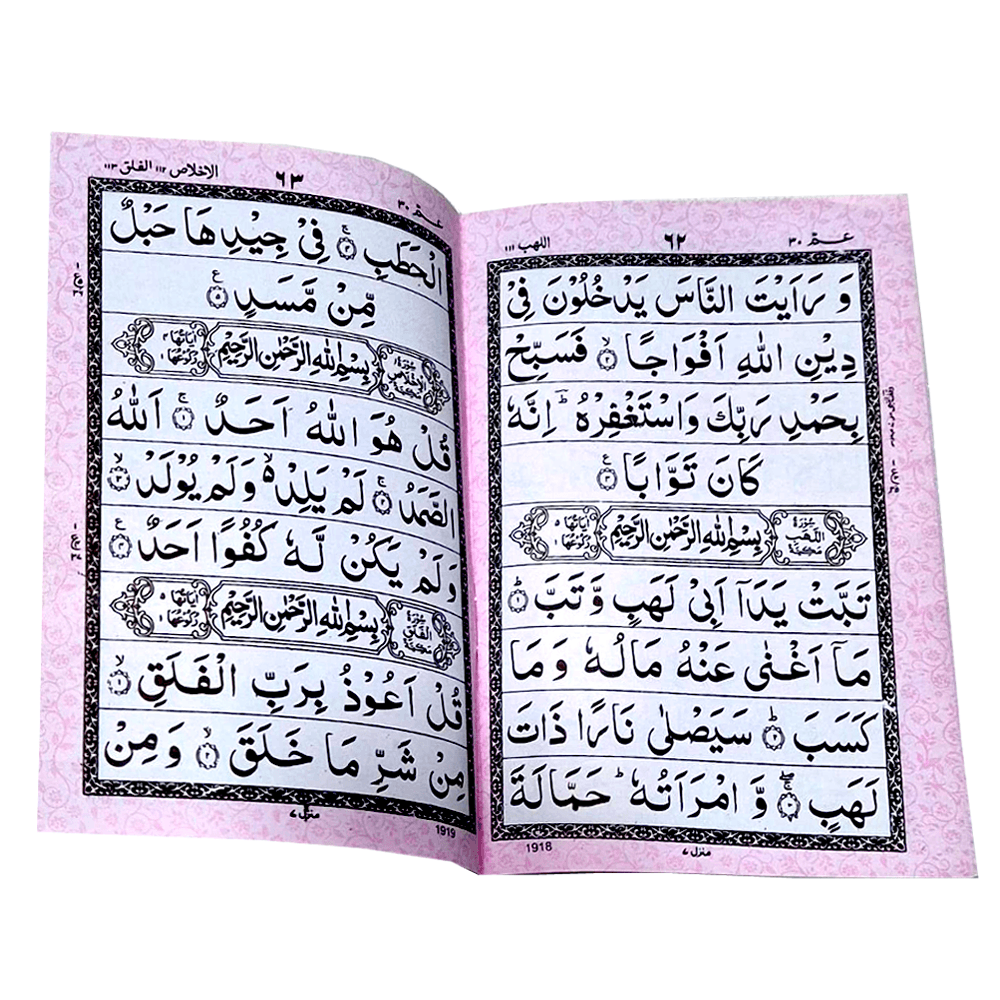 اللهب ١١١ ٦٢ عمّ ٣٠
وَرَاَيْتَ النَّاسَ يَدْخُلُوْنَ فِيْ
دِيْنِ اللّٰهِ اَفْوَاجًا ۙ﴿٢﴾ فَسَبِّحْ
بِحَمْدِ رَبِّكَ وَاسْتَغْفِرْهُ ؕ اِنَّهٗ
كَانَ تَوَّابًا ﴿٣﴾
سُوْرَةُ اللَّهَبِ مَكِّيَّةٌ بِسْمِ اللّٰهِ الرَّحْمٰنِ الرَّحِيْمِ اٰيَاتُهَا ٥ رُكُوْعُهَا ١
تَبَّتْ يَدَاۤ اَبِيْ لَهَبٍ وَّتَبَّ ؕ﴿١﴾
مَاۤ اَغْنٰى عَنْهُ مَالُهٗ وَمَا
كَسَبَ ؕ﴿٢﴾ سَيَصْلٰى نَارًا ذَاتَ
لَهَبٍ ﴿٣﴾ وَّامْرَاَتُهٗ ؕ حَمَّالَةَ
منزل ٧
1918
الاخلاص ١١٢ الفلق ١١٣ ٦٣ عمّ ٣٠
الْحَطَبِ ۚ﴿٤﴾ فِيْ جِيْدِهَا حَبْلٌ
مِّنْ مَّسَدٍ ﴿٥﴾
سُوْرَةُ الْاِخْلَاصِ مَكِّيَّةٌ بِسْمِ اللّٰهِ الرَّحْمٰنِ الرَّحِيْمِ اٰيَاتُهَا ٤ رُكُوْعُهَا ١
قُلْ هُوَ اللّٰهُ اَحَدٌ ۚ﴿١﴾ اَللّٰهُ
الصَّمَدُ ۚ﴿٢﴾ لَمْ يَلِدْ ۙ وَلَمْ يُوْلَدْ ۙ﴿٣﴾
وَلَمْ يَكُنْ لَّهٗ كُفُوًا اَحَدٌ ﴿٤﴾
سُوْرَةُ الْفَلَقِ مَكِّيَّةٌ بِسْمِ اللّٰهِ الرَّحْمٰنِ الرَّحِيْمِ اٰيَاتُهَا ٥ رُكُوْعُهَا ١
قُلْ اَعُوْذُ بِرَبِّ الْفَلَقِ ۙ﴿١﴾
مِنْ شَرِّ مَا خَلَقَ ۙ﴿٢﴾ وَمِنْ
منزل ٧
1919